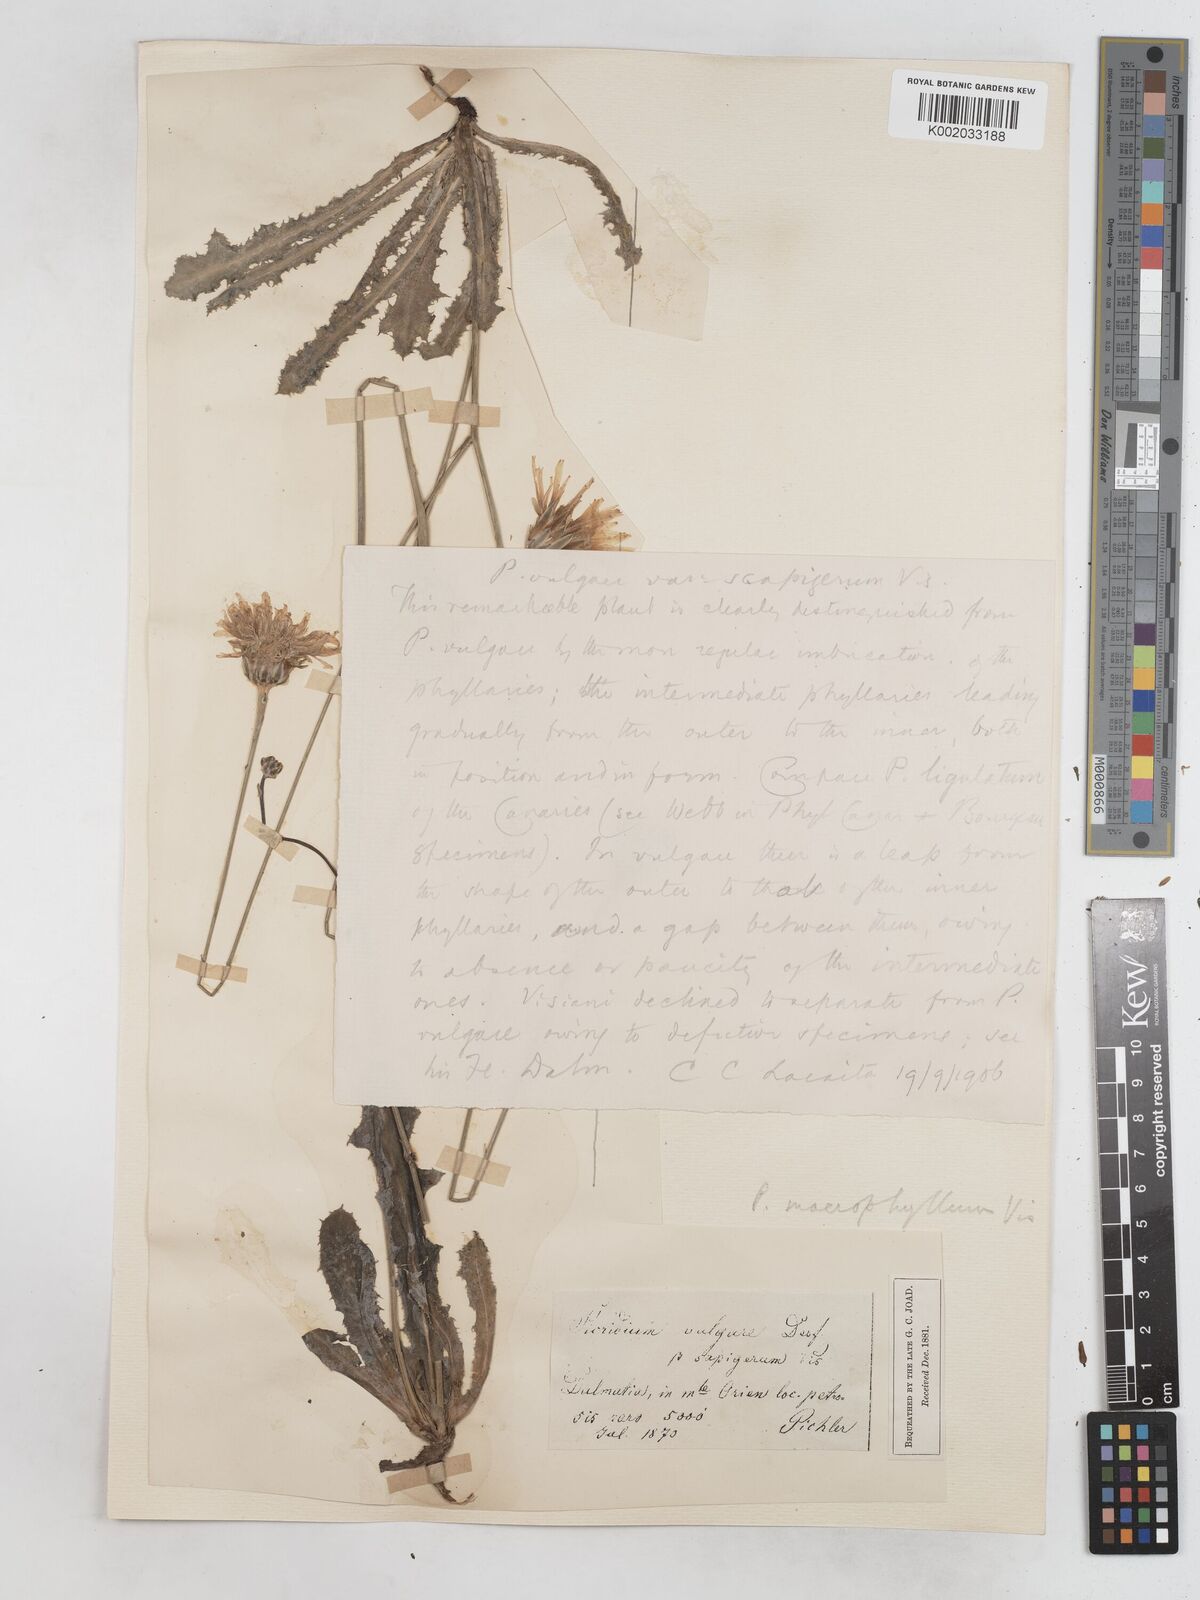 ROYAL BOTANIC GARDENS KEW
K002033188
P. vulgare var: scapigerum Vis.
This remarkable plant is clearly distinguished from
P. vulgare by the more regular imbrication of the
phyllaries; the intermediate phyllaries leading
gradually from the outer to the inner, both
in position and in form Compare P. ligulatum
of the Canaries (see Webb in Phyt Canar &
specimens). In vulgare there is a leap from
the shape of the outer to that of the inner
phyllaries, and a gap between them, owing
to absence or paucity of the intermediate
ones. Visiani declined to separate from P.
vulgare owing to defective specimens; see
his Fl. Dalm. C C Lacaita 19/9/1906
P. macrophyllum Vis
Picridium vulgare Desf
β sapigerum Vis
Dalmatias, in mte Orien loc. petro-
sis raro 5000'
Jul. 1870 Pichler
BEQUEATHED BY THE LATE G. C. JOAD.
Received Dec. 1881.
inches
centimetres
Density
Don Williams
M000866
Kew
ROYAL BOTANIC GARDENS
copyright reserved
0 1 2 3 4 5 6 7 8 9 10
cm